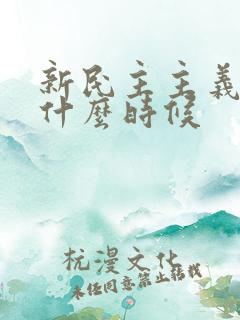 新民主主義
什麼時候
杭漫文化
未经同意禁止转载